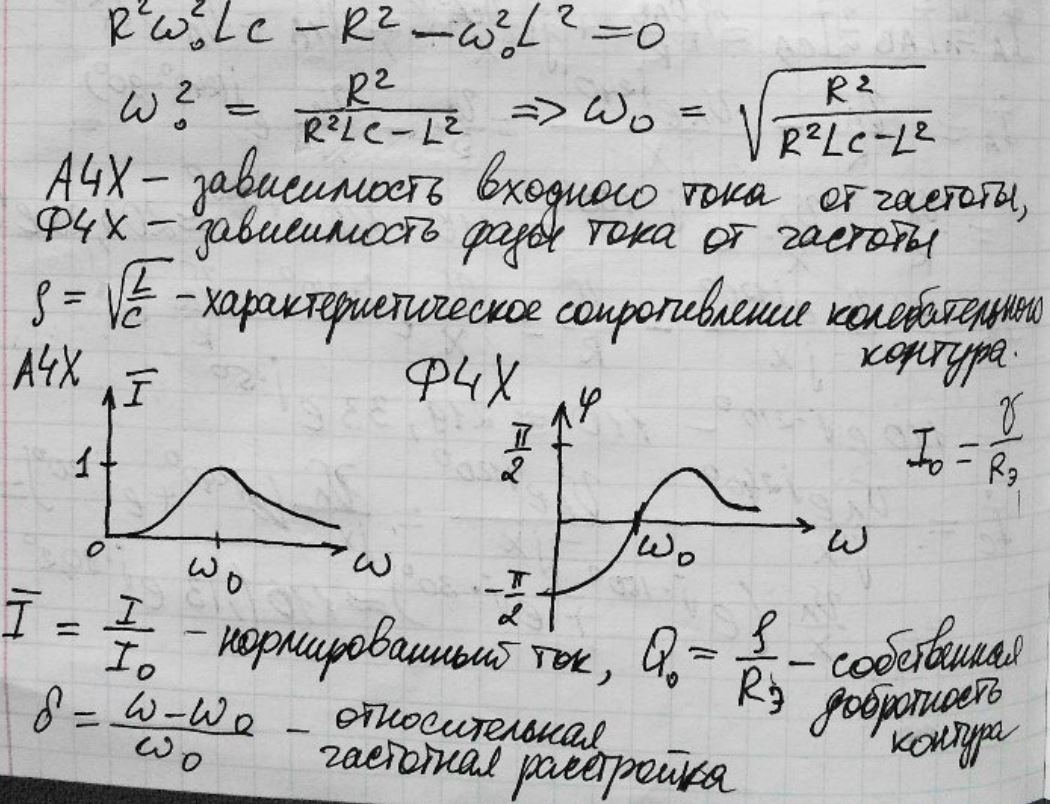 R²ω₀²LC − R² − ω₀²L² = 0
ω₀² = R² / (R²LC − L²) => ω₀ = √(R² / (R²LC − L²))
АЧХ – зависимость входного тока от частоты,
ФЧХ – зависимость фазы тока от частоты
ρ = √(L/C) – характеристическое сопротивление колебательного
контура.
АЧХ Ī 1 0 ω₀ ω
ФЧХ φ π/2 −π/2 ω₀ ω
I₀ = γ/Rэ
Ī = I/I₀ – нормированный ток, Q₀ = ρ/Rэ – собственная
добротность
контура
δ = (ω − ω₀)/ω₀ – относительная
частотная расстройка